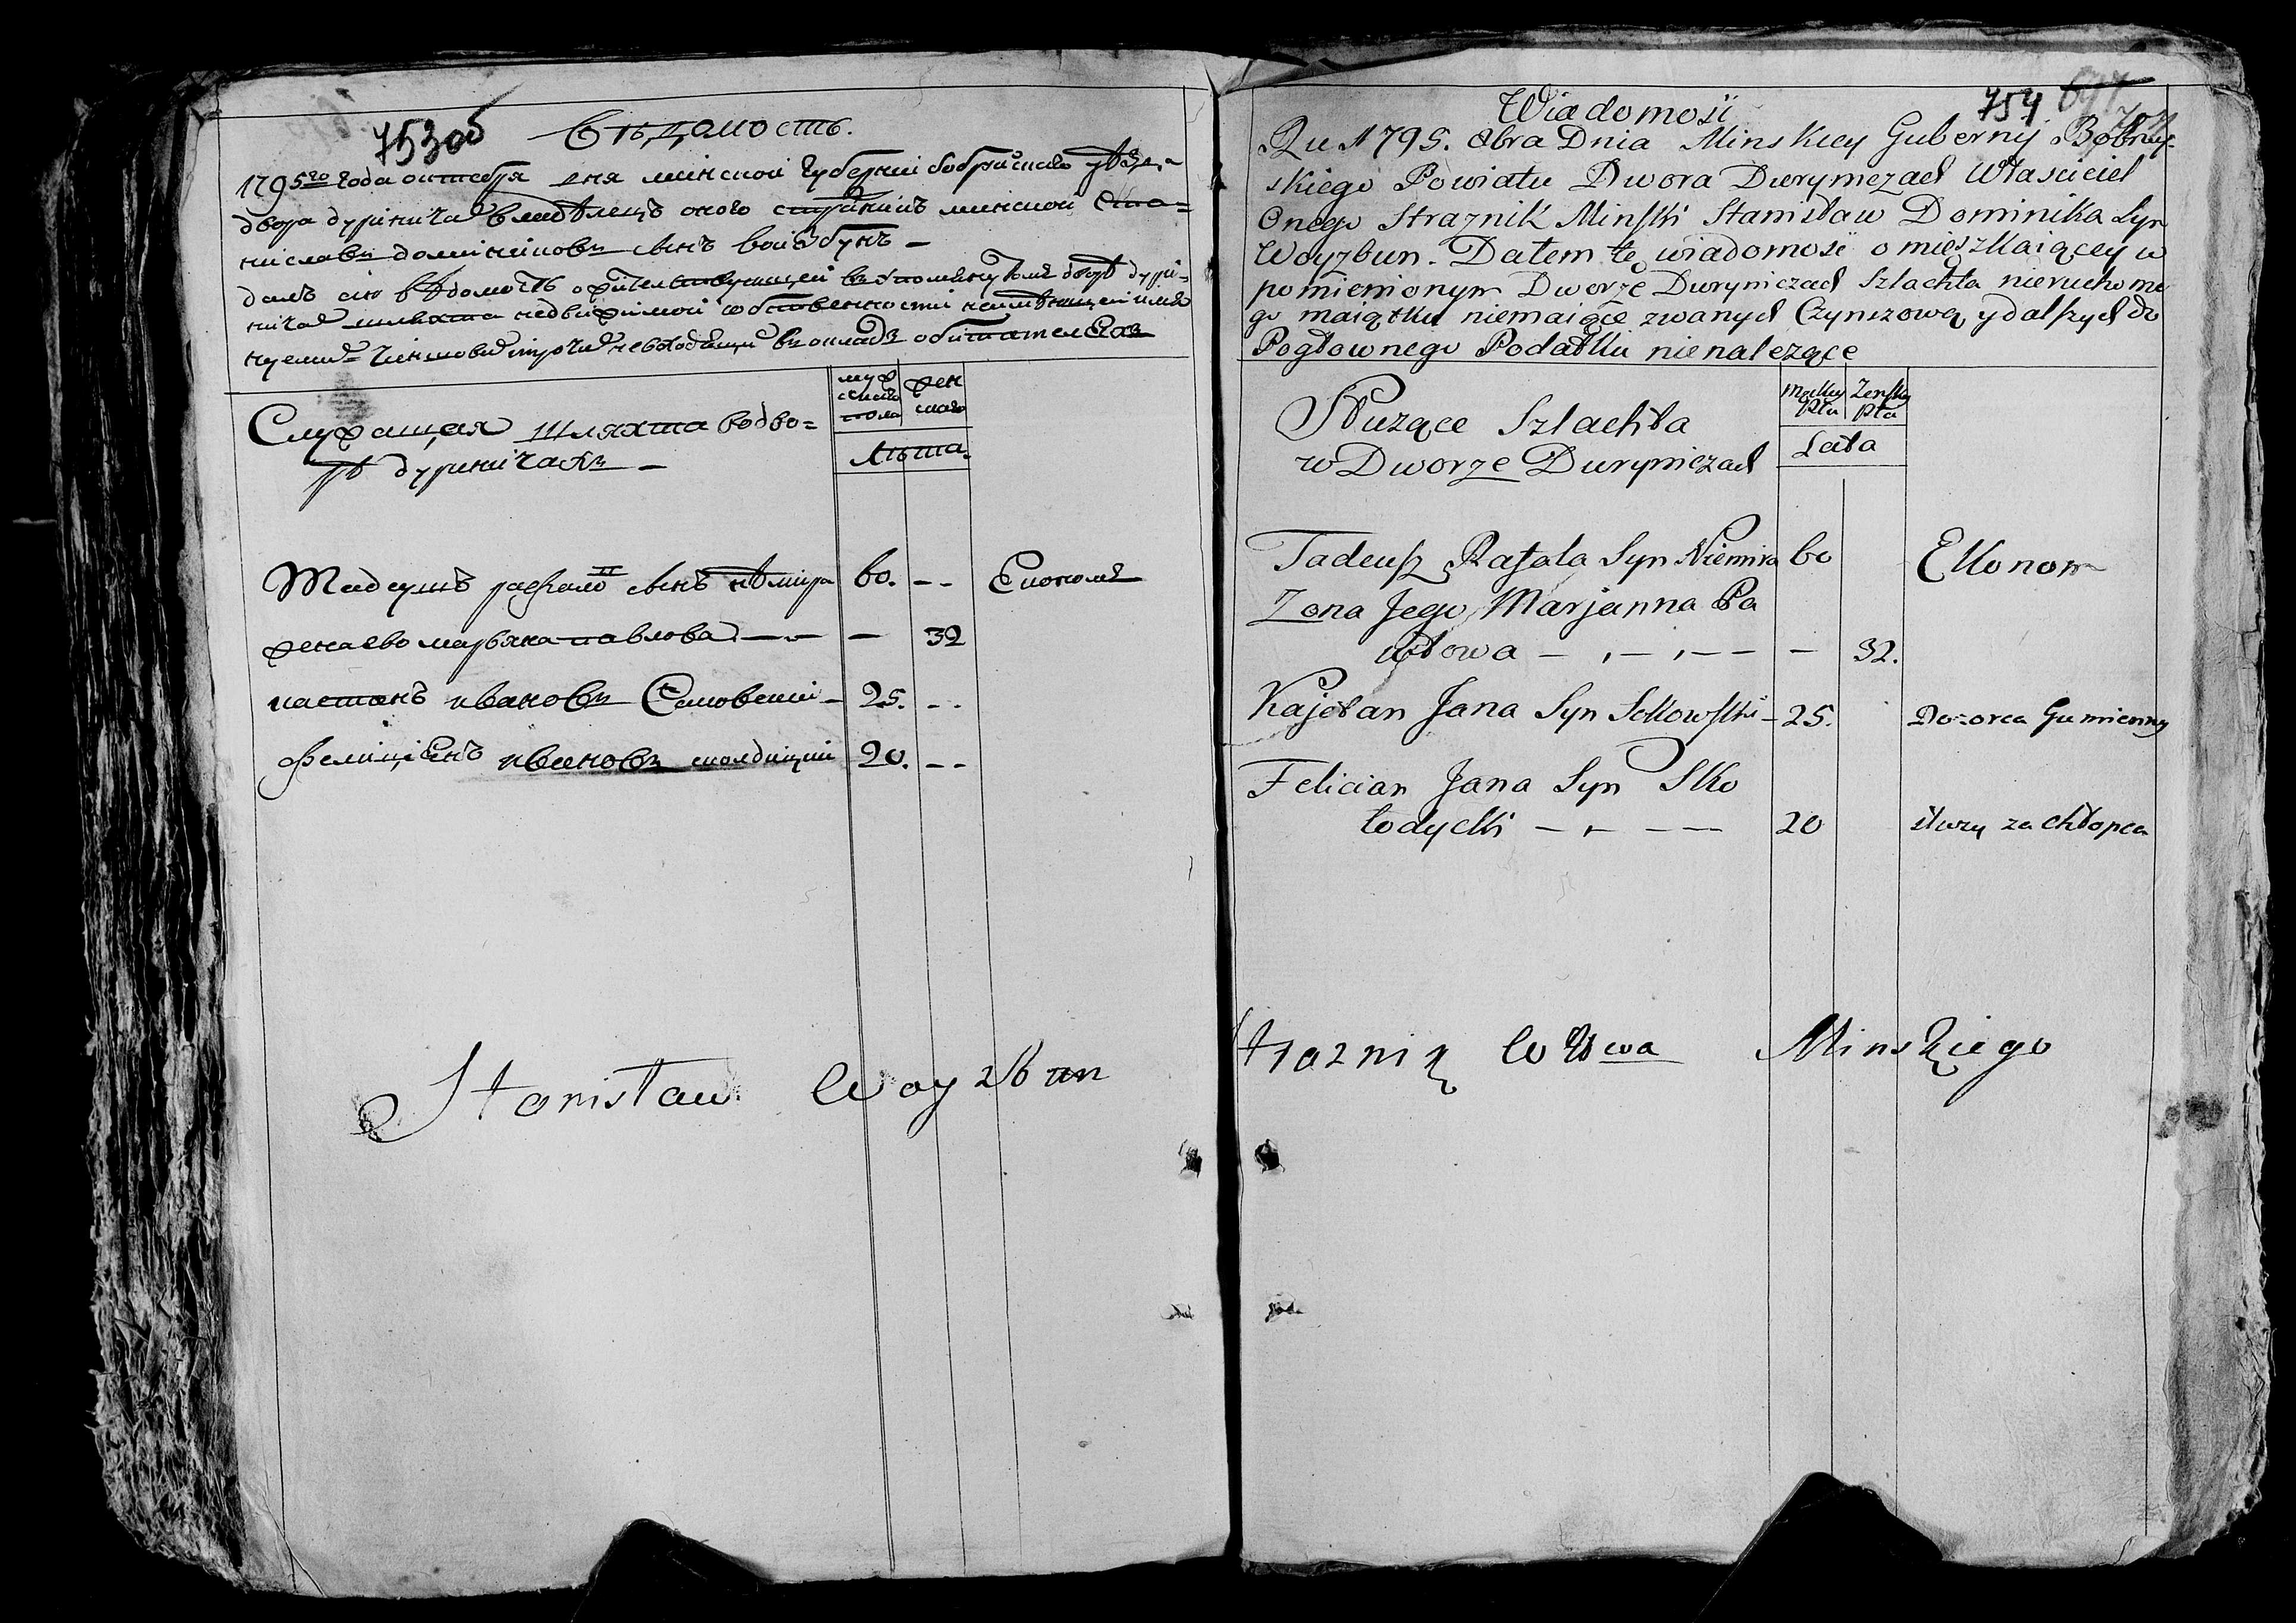 753об
Вѣдомость.
1795го года октебря дня минской губернии бобруйского уѣзда
двора дуриничах владѣлецъ оного стражникъ минской Ста=
ниславъ доминиковъ сынъ войзбунъ —
далъ сию вѣдомость о жительствующей въ упомянутомъ дворѣ дури-
ничах шляхта недвижимой собственности неимѣющей имя
нуемых чиншовых и прочих невходящих в окладъ обитателехъ
муж
ского
пола
жен
ского
Служащая шляхта во дво=
рѣ дуриничахъ —
лѣта.
Тадеушъ рафала сынъ нѣмира 60. -- Економъ
жена ево марьяна павлова — — — 32
кастанъ ивановъ Соковский — 25. --
Фелициянъ ивановъ сколдицкий 20. --
Stanisław Woyzbun
754
Wiadomosć
Ru 1795. 8bra Dnia Minskiey Guberny Bobruy-
skiego Powiatu Dwora Duryniczach Własciciel
Onego Straznik Minski Stanisław Dominika Syn
Woyzbun. Dałem tę wiadomosć o mieszkaiącey w
pomienionym Dworze Duryniczach Szlachta nieruchome
go maiątku niemaiące zwanych Czynszową y dalszych do
Pogłownego Podatku nienalezące
Męskiey Zenskiey
Płci Płci
Służące Szlachta
w Dworze Duryniczach
Lata
Tadeusz Rafala Syn Niemira 60 Ekonom
Zona Jego Marjanna Pa
włowa — — — — 32.
Kajetan Jana Syn Sokowski — 25. Dozorca Gumienny
Felician Jana Syn Sko
łodycki — — — 20 służy za chłopca
Straznik Wtwa Minskiego